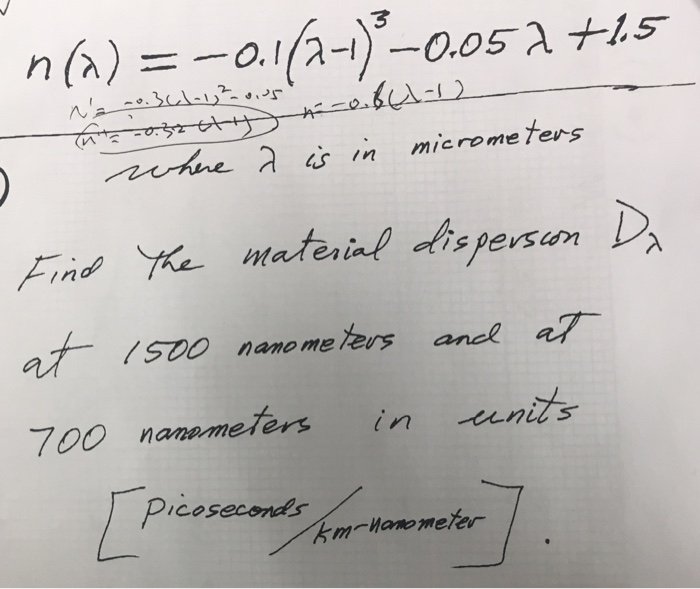 n(λ) = -0.1(λ-1)³ -0.05 λ +1.5
n' = -0.3(λ-1)² -0.05
n'' = -0.6(λ-1)
where λ is in micrometers
Find the material dispersion Dλ
at 1500 nanometers and at
700 nanometers in units
[Picoseconds/km-nanometer].